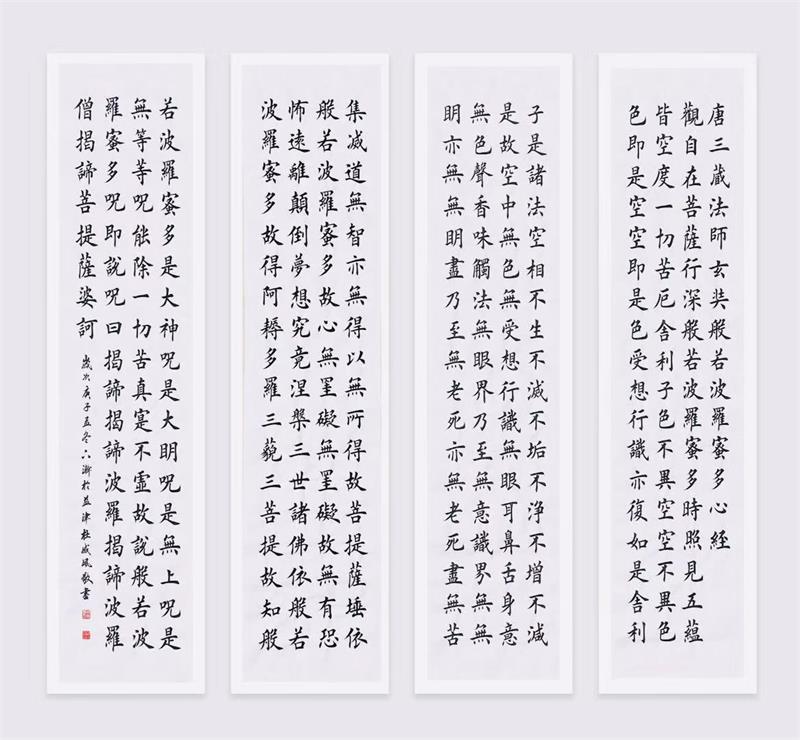 唐三藏法師玄奘般若波羅蜜多心經
觀自在菩薩行深般若波羅蜜多時照見五蘊
皆空度一切苦厄舍利子色不異空空不異色
色即是空空即是色受想行識亦復如是舍利
子是諸法空相不生不滅不垢不淨不增不減
是故空中無色無受想行識無眼耳鼻舌身意
無色聲香味觸法無眼界乃至無意識界無無
明亦無無明盡乃至無老死亦無老死盡無苦
集滅道無智亦無得以無所得故菩提薩埵依
般若波羅蜜多故心無罣礙無罣礙故無有恐
怖遠離顛倒夢想究竟涅槃三世諸佛依般若
波羅蜜多故得阿耨多羅三藐三菩提故知般
若波羅蜜多是大神呪是大明呪是無上呪是
無等等呪能除一切苦真寔不虛故說般若波
羅蜜多呪即說呪曰揭諦揭諦波羅揭諦波羅
僧揭諦菩提薩婆訶
歲次庚子孟冬於益津杜成敬書